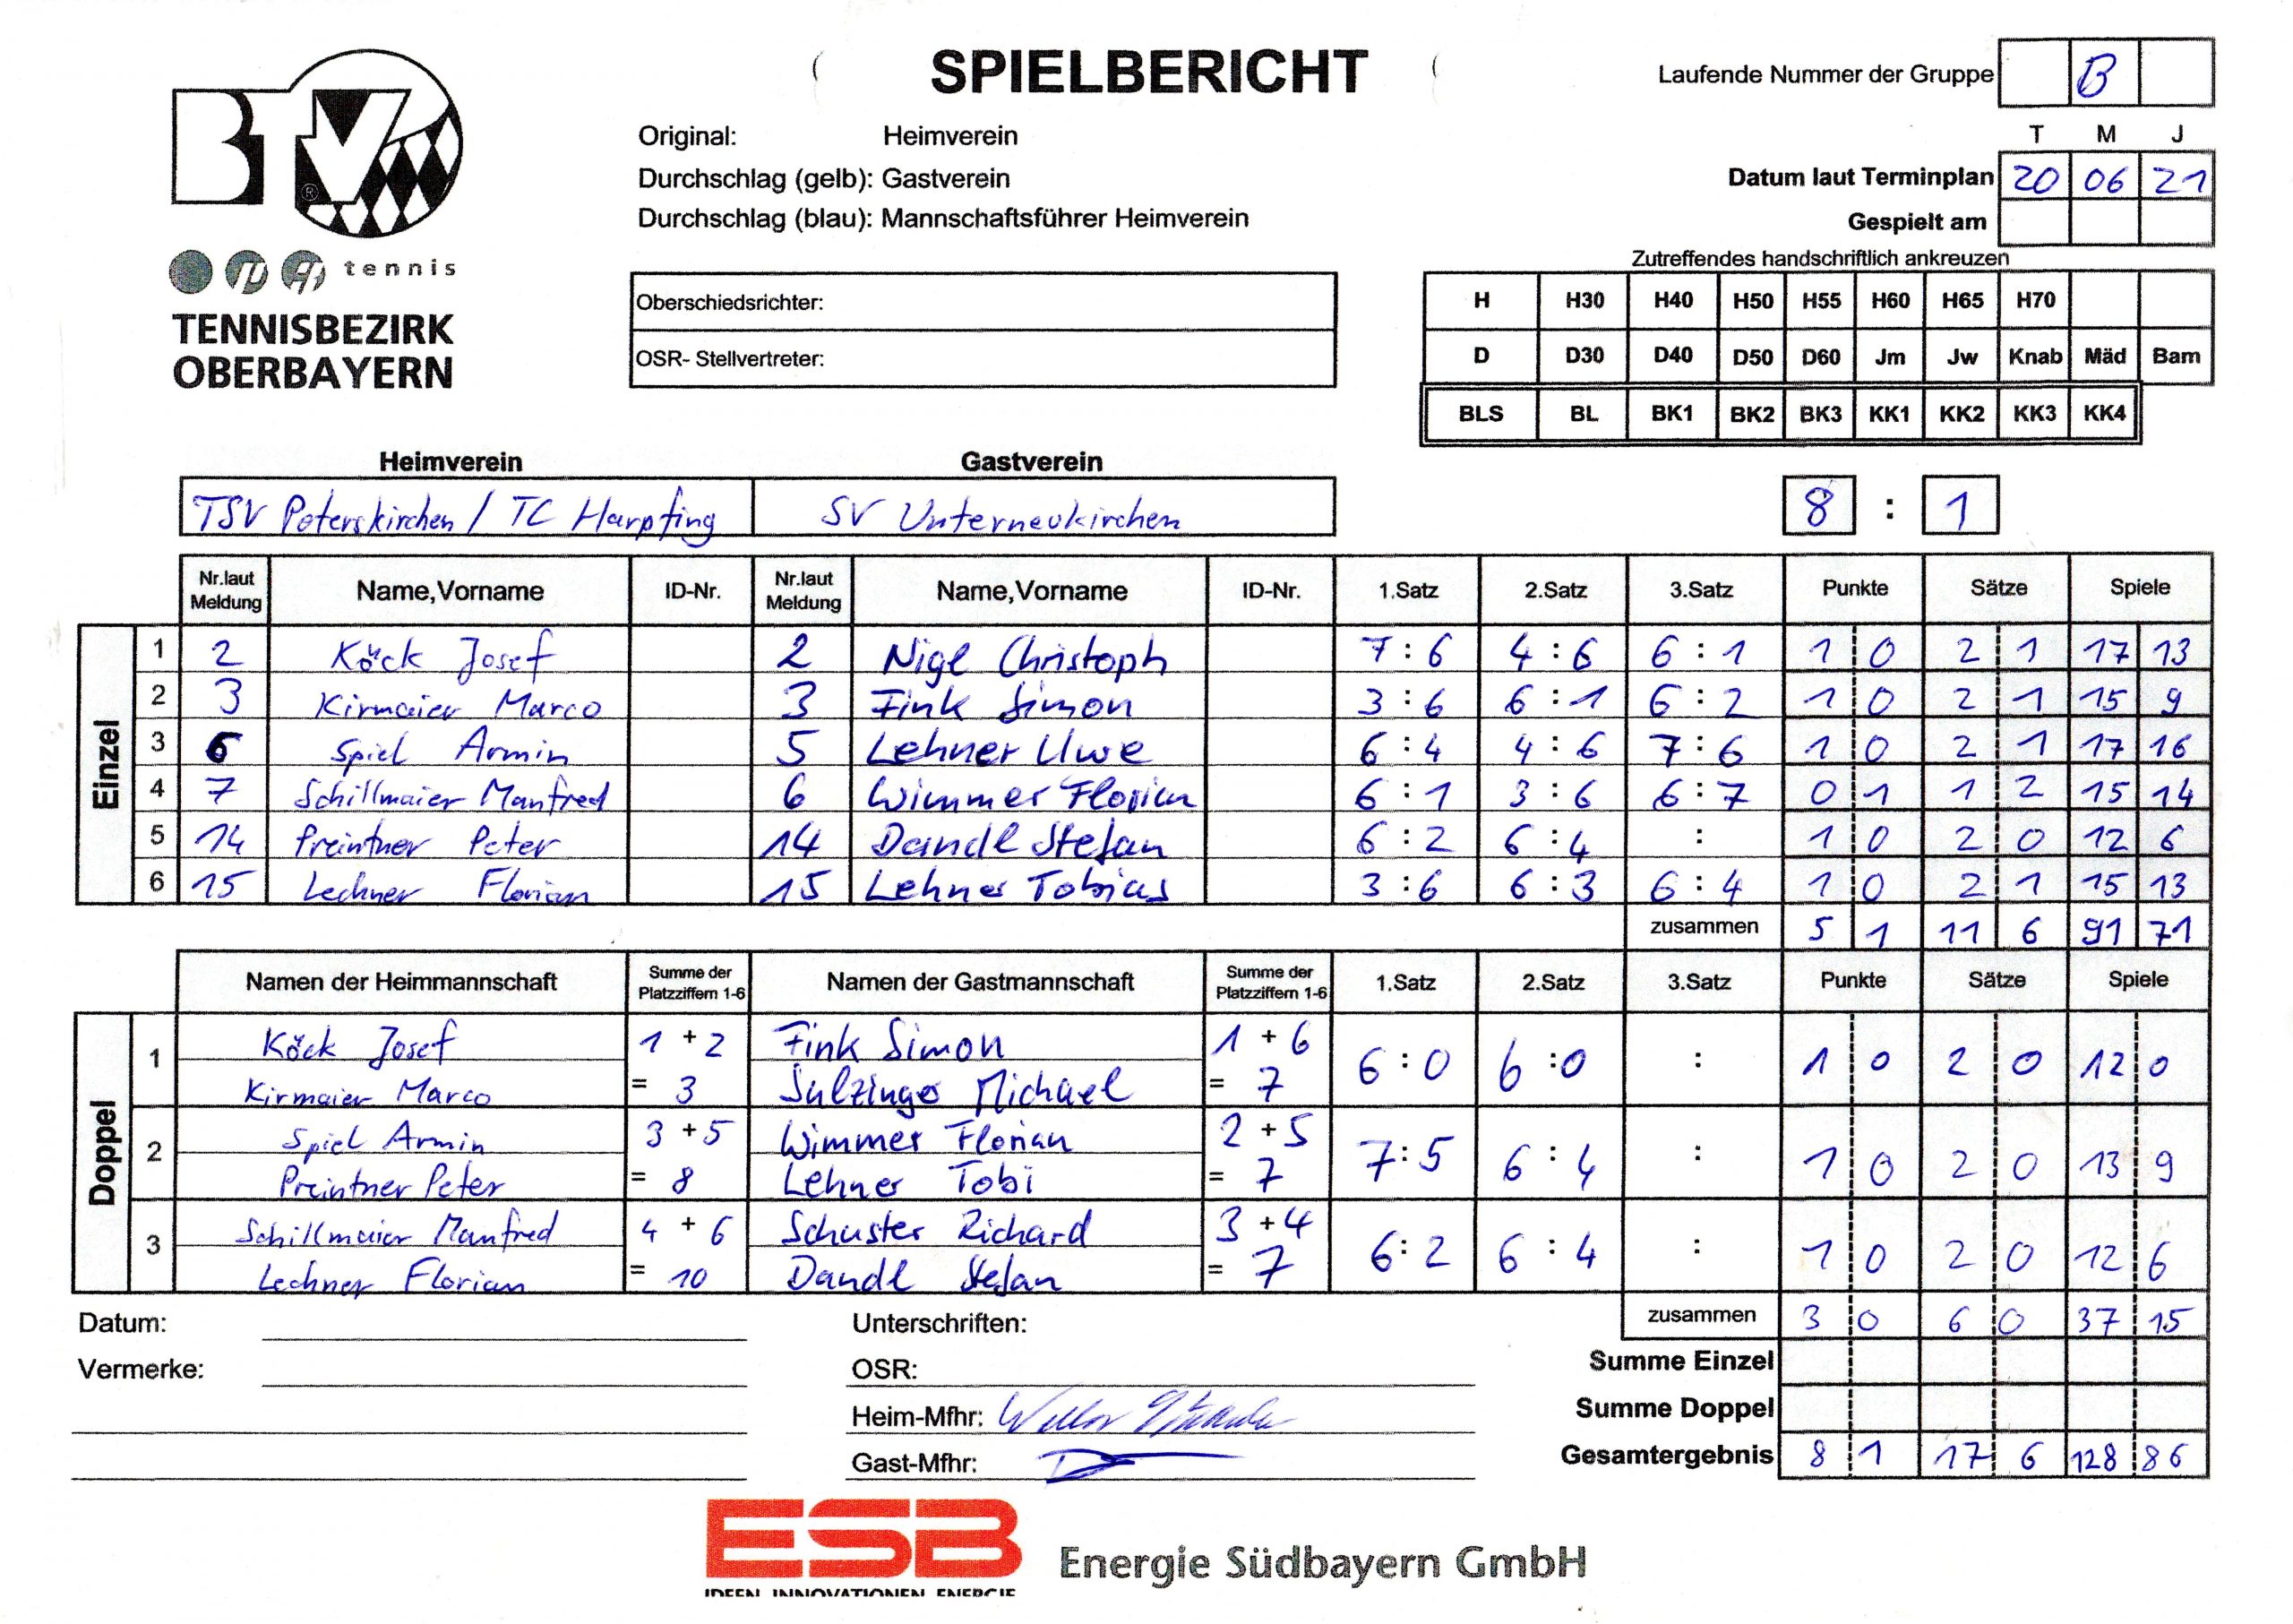 SPIELBERICHT
Laufende Nummer der Gruppe B
BTV ®
Original: Heimverein
T M J
Durchschlag (gelb): Gastverein
Datum laut Terminplan 20 06 21
Durchschlag (blau): Mannschaftsführer Heimverein
Gespielt am
tennis
Zutreffendes handschriftlich ankreuzen
TENNISBEZIRK
OBERBAYERN
Oberschiedsrichter:
OSR- Stellvertreter:
H H30 H40 H50 H55 H60 H65 H70
D D30 D40 D50 D60 Jm Jw Knab Mäd Bam
BLS BL BK1 BK2 BK3 KK1 KK2 KK3 KK4
Heimverein Gastverein
TSV Peterskirchen / TC Harpfing SV Unterneukirchen 8 : 1
Nr.laut Meldung Name,Vorname ID-Nr. Nr.laut Meldung Name,Vorname ID-Nr. 1.Satz 2.Satz 3.Satz Punkte Sätze Spiele
Einzel
1 2 Köck Josef 2 Nigl Christoph 7 : 6 4 : 6 6 : 1 1 0 2 1 17 13
2 3 Kirmaier Marco 3 Fink Simon 3 : 6 6 : 1 6 : 2 1 0 2 1 15 9
3 6 Spiel Armin 5 Lehner Uwe 6 : 4 4 : 6 7 : 6 1 0 2 1 17 16
4 7 Schillmaier Manfred 6 Wimmer Florian 6 : 1 3 : 6 6 : 7 0 1 1 2 15 14
5 14 Preintner Peter 14 Dandl Stefan 6 : 2 6 : 4 : 1 0 2 0 12 6
6 15 Lechner Florian 15 Lehner Tobias 3 : 6 6 : 3 6 : 4 1 0 2 1 15 13
zusammen 5 1 11 6 91 71
Namen der Heimmannschaft Summe der Platzziffern 1-6 Namen der Gastmannschaft Summe der Platzziffern 1-6 1.Satz 2.Satz 3.Satz Punkte Sätze Spiele
Doppel
1 Köck Josef 1 + 2 Fink Simon 1 + 6 6 : 0 6 : 0 : 1 0 2 0 12 0
Kirmaier Marco = 3 Salzinger Michael = 7
2 Spiel Armin 3 + 5 Wimmer Florian 2 + 5 7 : 5 6 : 4 : 1 0 2 0 13 9
Preintner Peter = 8 Lehner Tobi = 7
3 Schillmaier Manfred 4 + 6 Schuster Richard 3 + 4 6 : 2 6 : 4 : 1 0 2 0 12 6
Lechner Florian = 10 Dandl Stefan = 7
Datum: Unterschriften: zusammen 3 0 6 0 37 15
Vermerke: OSR: Summe Einzel
Heim-Mfhr: Summe Doppel
Gast-Mfhr: Gesamtergebnis 8 1 17 6 128 86
ESB
IDEEN INNOVATIONEN ENERGIE
Energie Südbayern GmbH